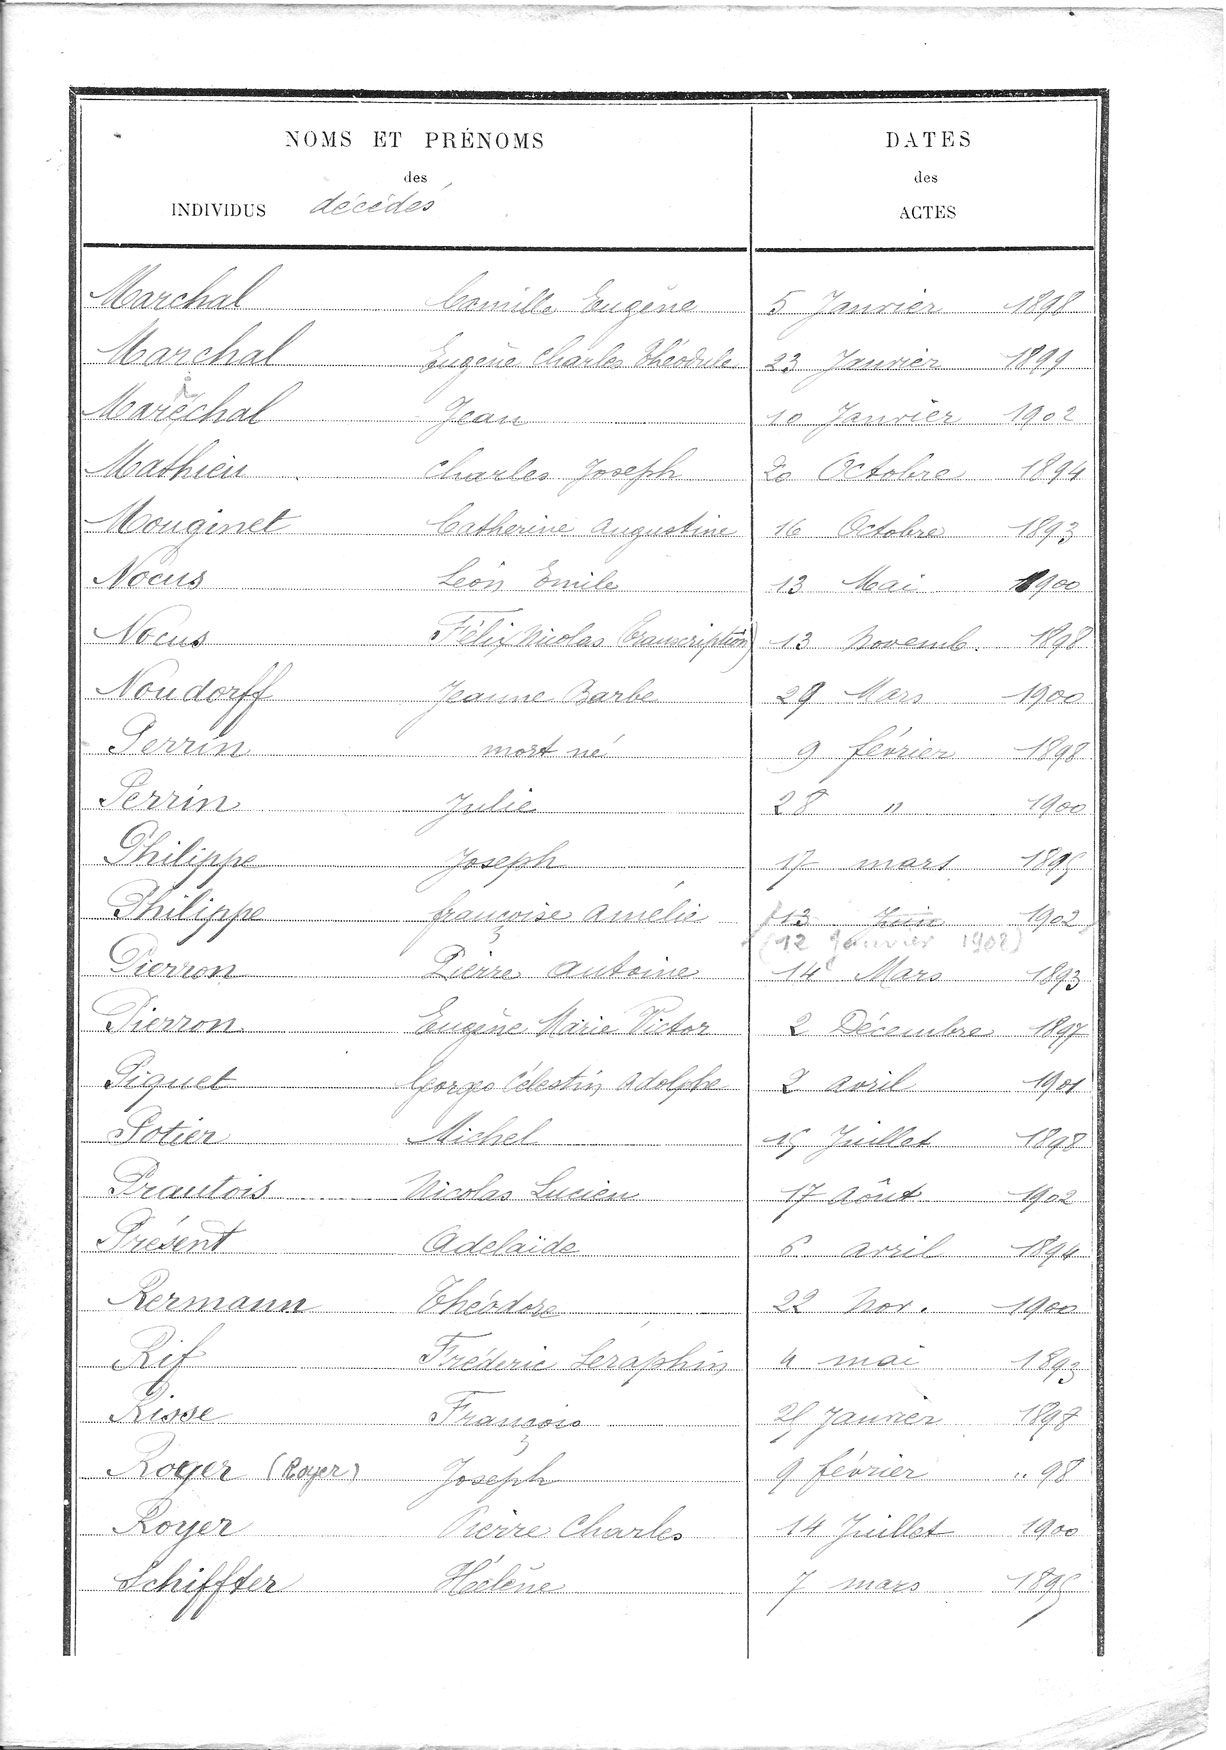 NOMS ET PRÉNOMS
des
INDIVIDUS décédés
DATES
des
ACTES
Marchal Camille Eugène 5 Janvier 1898
Marchal Eugène Charles Théodule 23 Janvier 1899
Maréchal Jean 10 Janvier 1902
Mathieu Charles Joseph 20 Octobre 1894
Mouginet Catherine Augustine 16 Octobre 1893
Nocus Léon Emile 13 Mai 1900
Nocus Félix Nicolas (Transcription) 13 Novemb. 1898
Noudorff Jeanne Barbe 29 Mars 1900
Perrin mort né 9 février 1898
Perrin Julie 28 " 1900
Philippe Joseph 17 mars 1895
Philippe françoise Amélie 13 Juin 1902
(12 Janvier 1902)
Pierron Pierre Antoine 14 Mars 1893
Pierron Eugène Marie Victor 2 Décembre 1897
Piquet Georges Célestin Adolphe 2 avril 1901
Potier Michel 15 Juillet 1898
Prautois Nicolas Lucien 17 Août 1902
Présent Adelaïde 6 avril 1894
Rermann Théodore 22 Nov. 1900
Rif Fréderic Séraphin 4 mai 1893
Risse François 25 Janvier 1898
Roger (Royer) Joseph 9 février " 98
Royer Pierre Charles 14 Juillet 1900
Schiffter Hélène 7 mars 1895